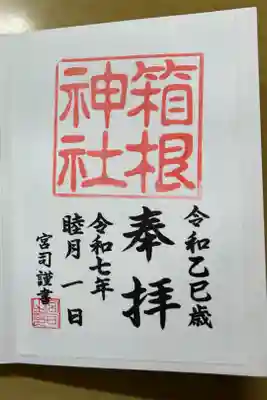 箱根
神社
令和乙巳歳
奉拝
令和七年
睦月一日
宮司謹書